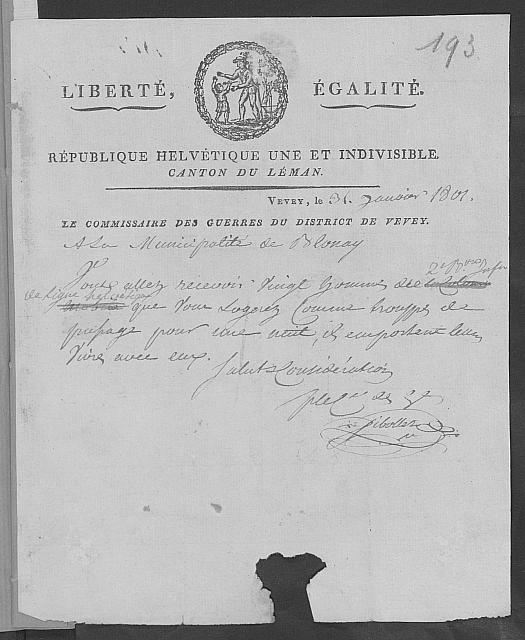 193
LIBERTÉ, ÉGALITÉ.
RÉPUBLIQUE HELVÉTIQUE UNE ET INDIVISIBLE.
CANTON DU LÉMAN.
VEVEY, le 31 Janvier 1801.
LE COMMISSAIRE DES GUERRES DU DISTRICT DE VEVEY.
A La Municipalité de Blonay
Vous allez recevoir Vingt hommes de
de Ligne helvétique que Vous Logerez Comme trouppes de
passage pour une nuit, ils emportent leur
Vivre avec eux.
Salut & Considération